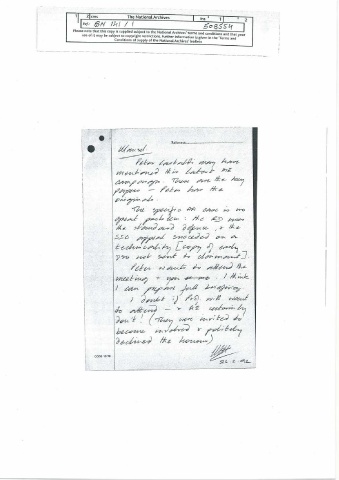 The National Archives
Ref: BN 141/1
508554
Please note that this copy is supplied subject to the National Archives' terms and conditions and that your
use of it may be subject to copyright restrictions. Further information is given in the 'Terms and
Conditions of supply of the National Archives' leaflets
Reference
Peter may have
mentioned this latest ME
campaign. These are the key
papers - Peter has the
originals.
The specific AA case is no
great problem: the AO was
the standard defence, & the
SSC appeal succeeded on a
technicality [copy of early
not sent to claimant].
Peter wants to attend the
meeting & you so. I think
I can prepare full briefing.
I doubt if will want
to attend - & we certainly
don't! (They were invited to
become involved & politely
declined the honour)
CODE 18-78